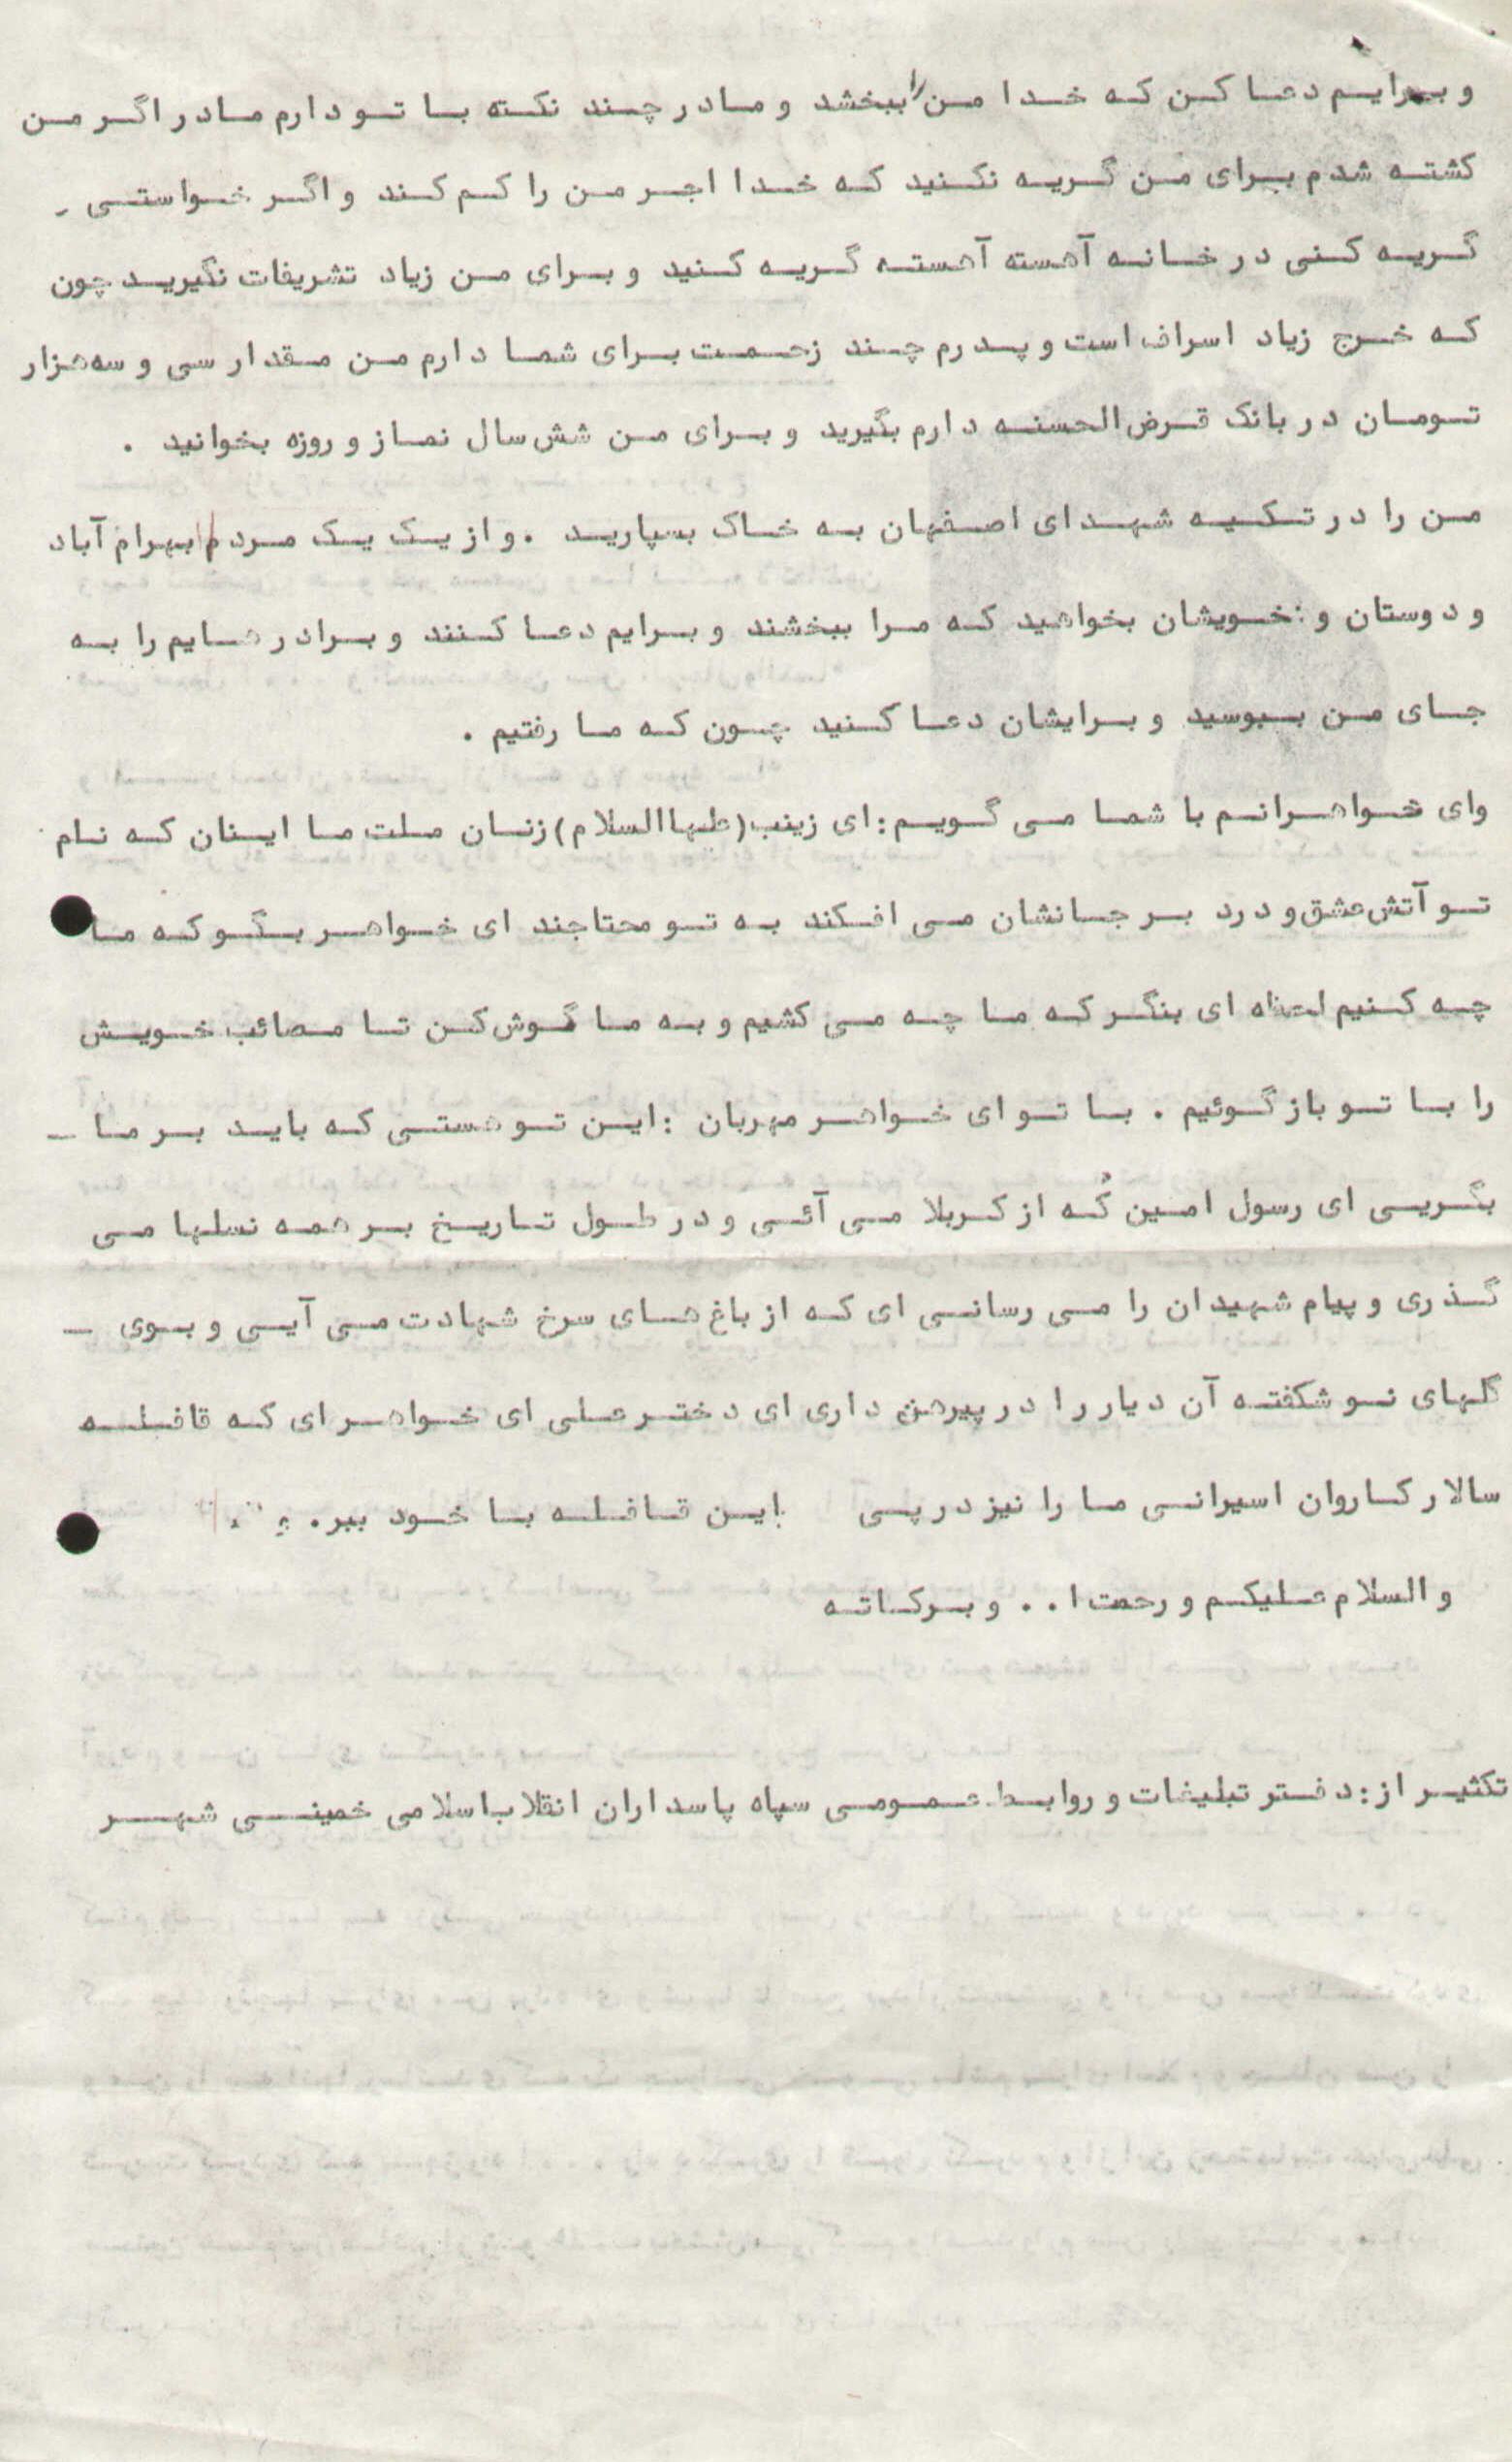 و برایم دعا کن که خدا من را ببخشد و مادر چند نکته با تو دارم مادر اگر من
کشته شدم برای من گریه نکنید که خدا اجر من را کم کند و اگر خواستی -
گریه کنی در خانه آهسته آهسته گریه کنید و برای من زیاد تشریفات نگیرید چون
که خرج زیاد اسراف است و پدرم چند زحمت برای شما دارم من مقدار سی و سه هزار
تومان در بانک قرض الحسنه دارم بگیرید و برای من شش سال نماز و روزه بخوانید .
من را در تکیه شهدای اصفهان به خاک بسپارید . و از یک یک مردم بهرام آباد
و دوستان و خویشان بخواهید که مرا ببخشند و برایم دعا کنند و برادرهایم را به
جای من ببوسید و برایشان دعا کنید چون که ما رفتیم .
وای خواهرانم با شما می گویم : ای زینب (علیها السلام) زنان ملت ما اینان که نام
تو آتش عشق و درد بر جانشان می افکند به تو محتاجند ای خواهر بگو که ما
چه کنیم لحظه ای بنگر که ما چه می کشیم و به ما گوش کن تا مصائب خویش
را با تو باز گوئیم . با تو ای خواهر مهربان : این تو هستی که باید بر ما -
بگریی ای رسول امین که از کربلا می آئی و در طول تاریخ بر همه نسلها می
گذری و پیام شهیدان را می رسانی ای که از باغ های سرخ شهادت می آیی و بوی -
گلهای نو شکفته آن دیار را در پیرهن داری ای دختر علی ای خواهر ای که قافله
سالار کاروان اسیرانی ما را نیز در پی این قافله با خود ببر .
والسلام علیکم و رحمت ا . . و برکاته
تکثیر از : دفتر تبلیغات و روابط عمومی سپاه پاسداران انقلاب اسلامی خمینی شهر